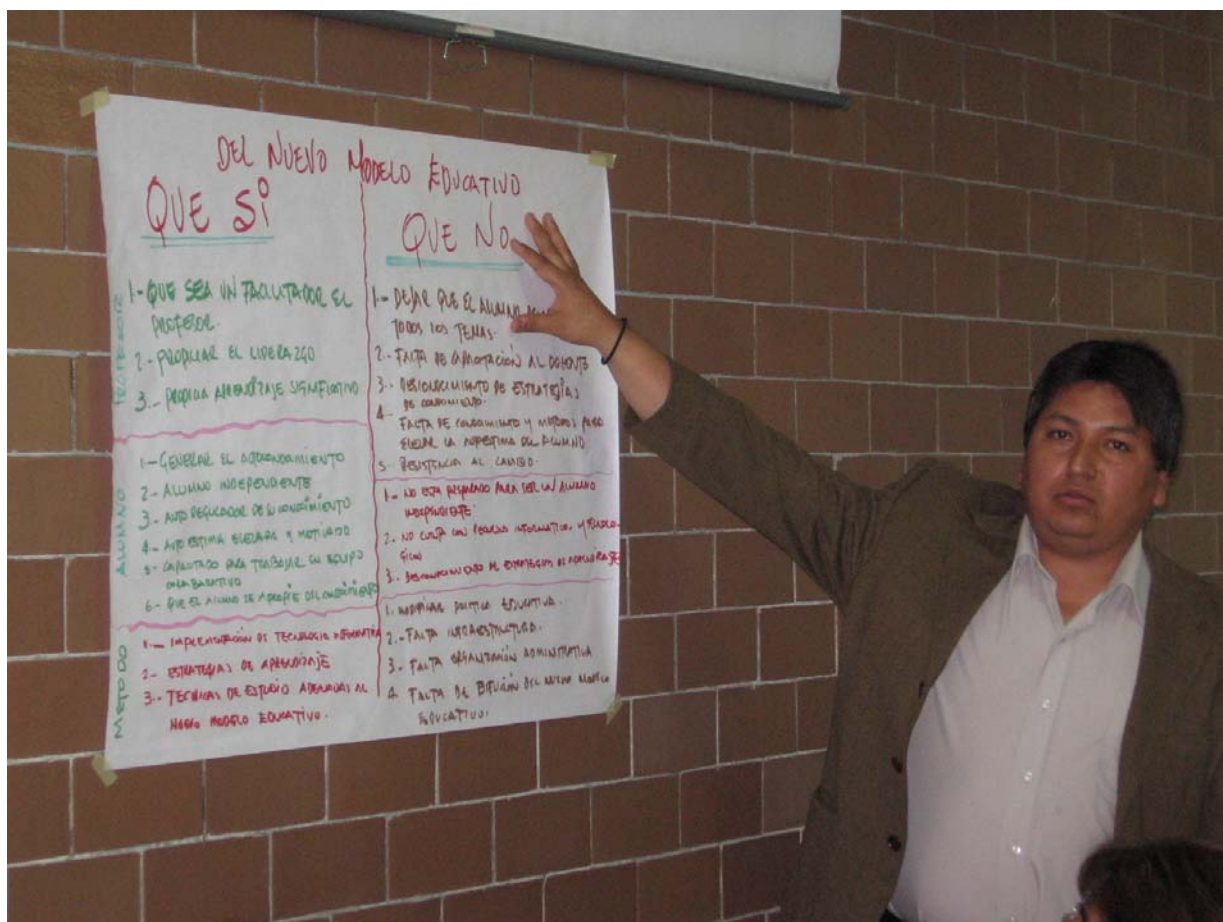 DEL NUEVO MODELO EDUCATIVO
QUE SÍ
PROFESOR
1.- QUE SEA UN FACILITADOR EL
PROFESOR.
2.- PROPICIAR EL LIDERAZGO
3.- PROPICIA APRENDIZAJE SIGNIFICATIVO
ALUMNO
1.- GENERAR EL
2.- ALUMNO INDEPENDIENTE
3.- AUTO REGULADOR DE SU CONOCIMIENTO
4.- AUTO ESTIMA ELEVADA Y MOTIVADO
5.- CAPACITADO PARA TRABAJAR EN EQUIPO
COLABORATIVO
6.- QUE EL ALUMNO SE APROPIE DEL CONOCIMIENTO
METODO
1.- IMPLEMENTACIÓN DE TECNOLOGIA INFORMATICA
2.- ESTRATEGIAS DE APRENDIZAJE
3.- TECNICAS DE ESTUDIO ADECUADAS AL
NUEVO MODELO EDUCATIVO.
QUE NO
1.- DEJAR QUE EL ALUMNO
TODOS LOS TEMAS.
2.- FALTA DE CAPACITACIÓN AL DOCENTE
3.- DESCONOCIMIENTO DE ESTRATEGIAS
DE CONOCIMIENTO.
4.- FALTA DE CONOCIMIENTO Y METODOS PARA
ELEVAR LA AUTOESTIMA DEL ALUMNO
5.- RESISTENCIA AL CAMBIO.
1.- NO ESTA PREPARADO PARA SER UN ALUMNO
INDEPENDIENTE.
2.- NO CUENTA CON RECURSOS INFORMATICOS Y TECNOLO-
GICOS
3.- DESCONOCIMIENTO DE ESTRATEGIAS DE APRENDIZAJE
1.- MODIFICAR POLITICA EDUCATIVA.
2.- FALTA INFRAESTRUCTURA.
3.- FALTA ORGANIZACIÓN ADMINISTRATIVA
4. FALTA DE DIFUSIÓN DEL NUEVO MODELO
EDUCATIVO.